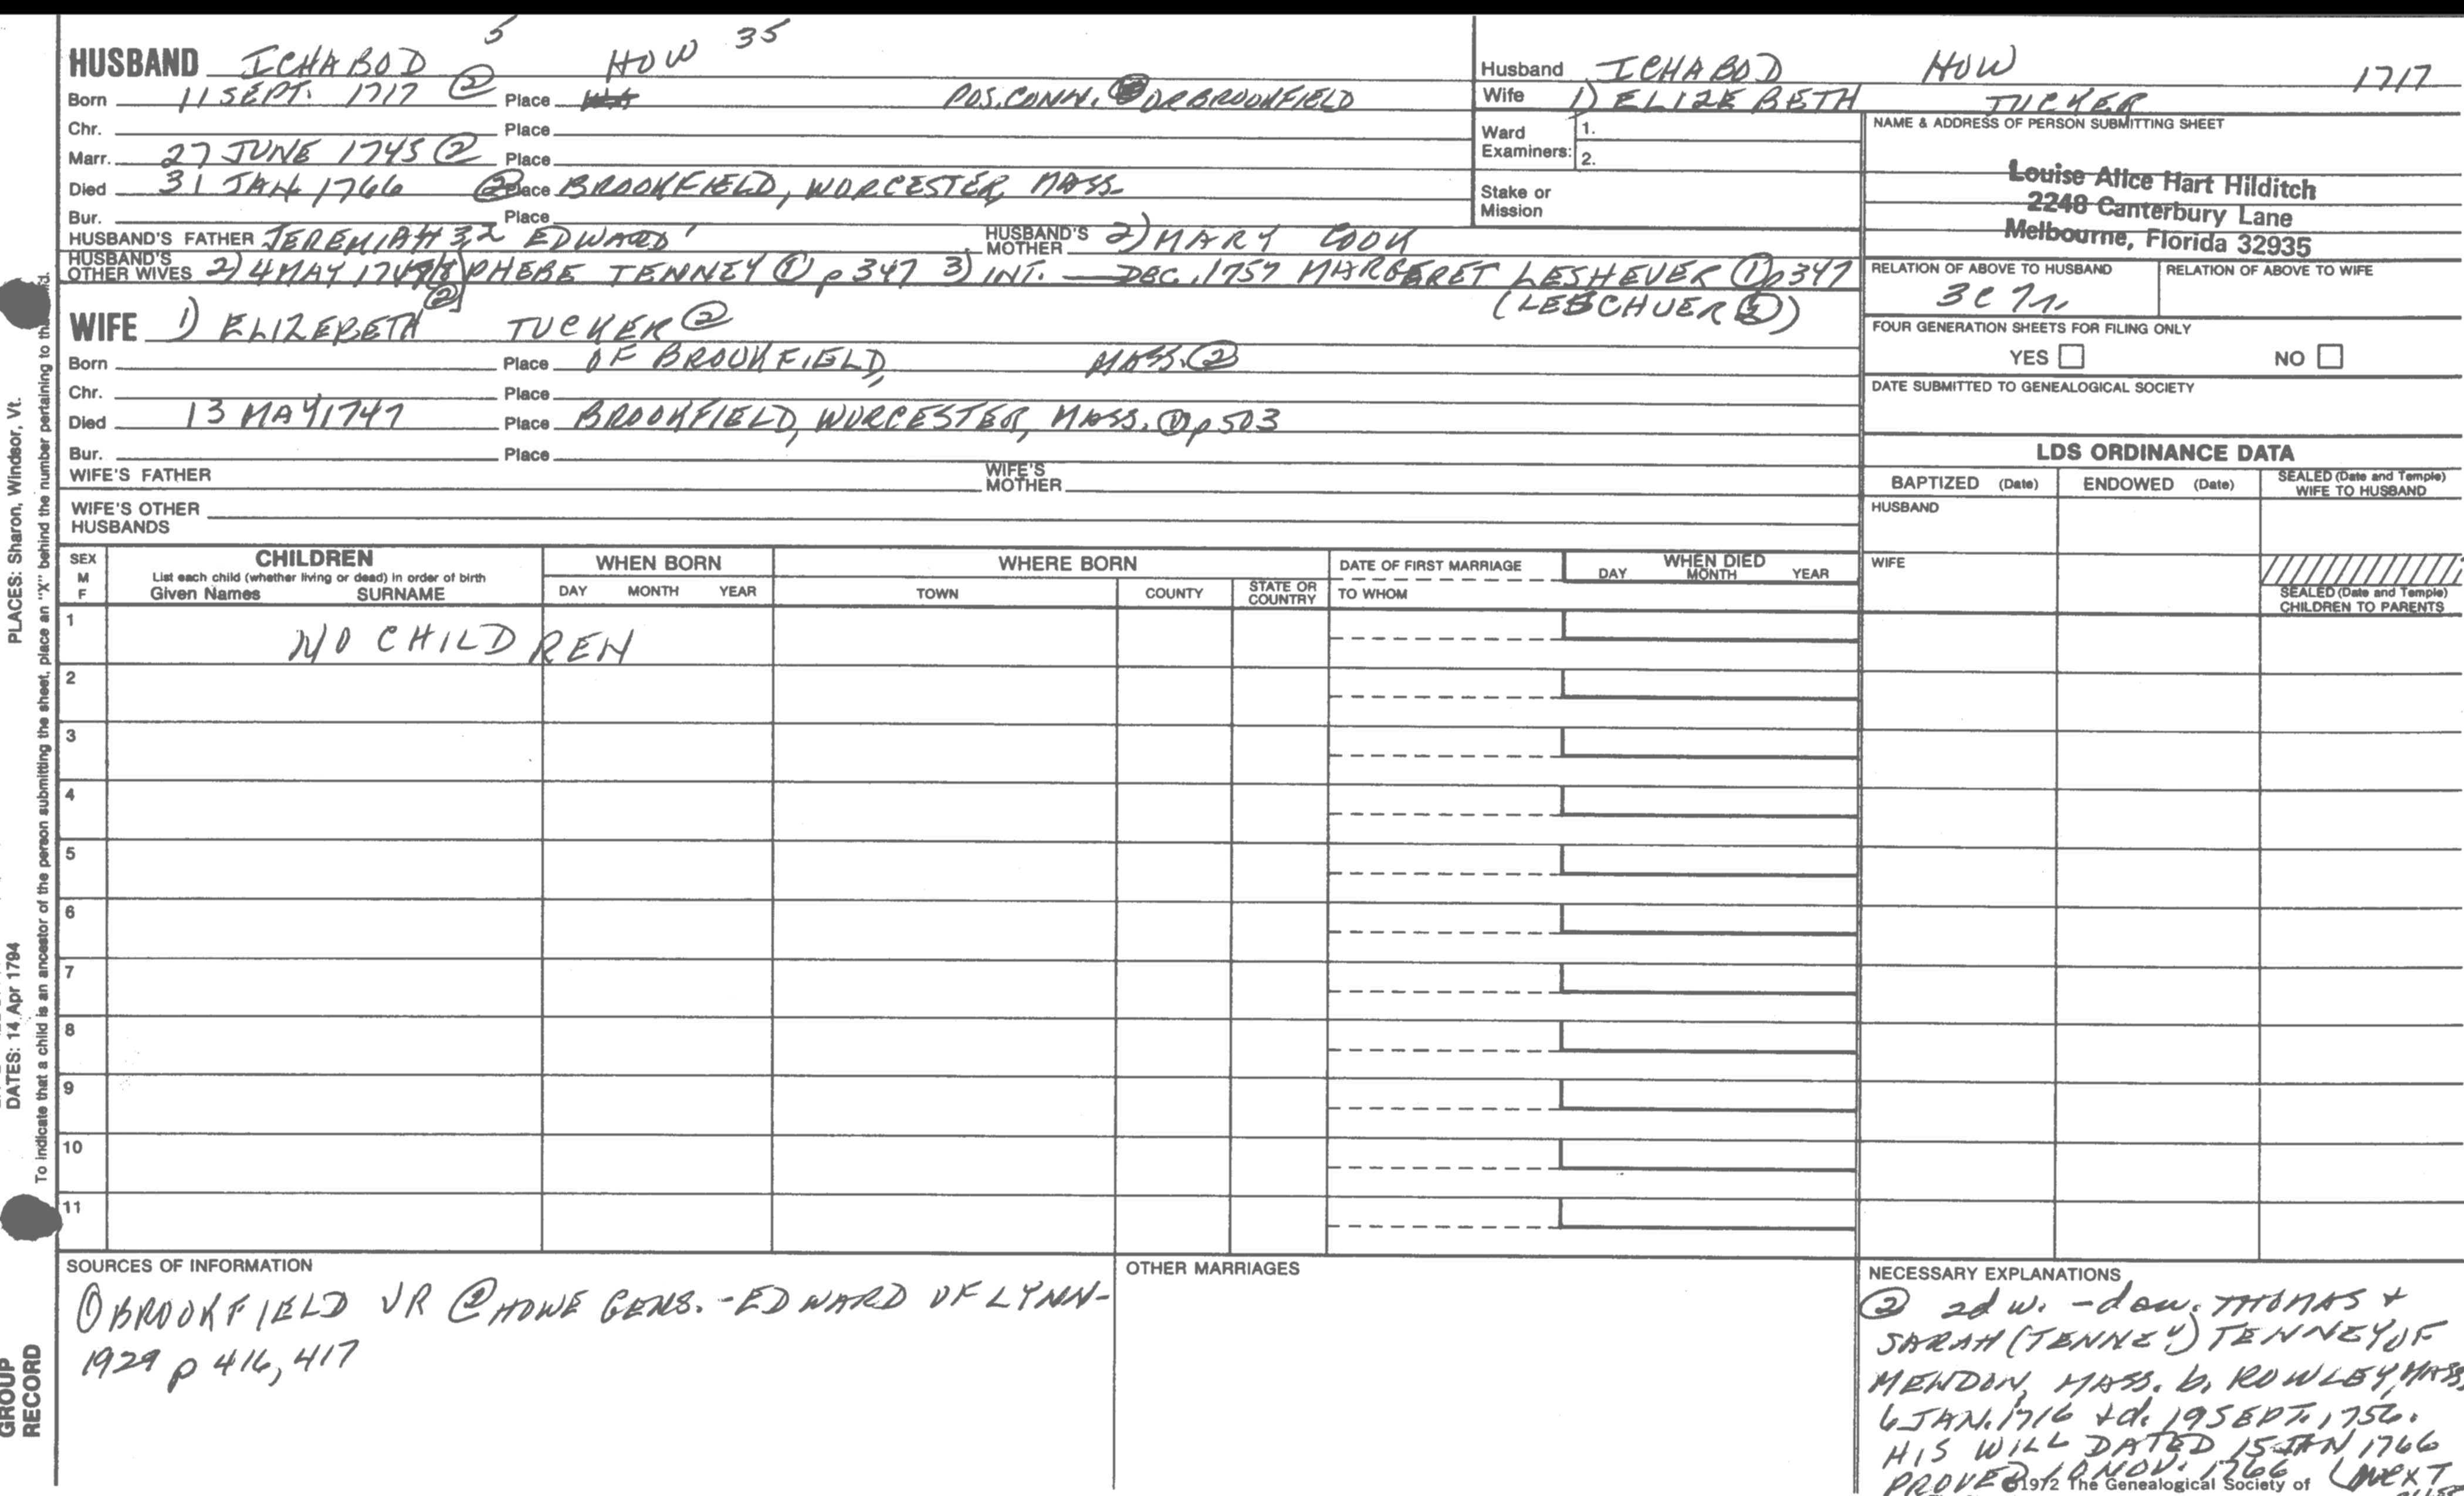 5
HUSBAND ICHABOD ② HOW 35
Born 11 SEPT. 1717 Place POS. CONN. OR BROOKFIELD
Chr. Place
Marr. 27 JUNE 1745 ② Place
Died 31 JAN 1766 ② Place BROOKFIELD, WORCESTER, MASS.
Bur. Place
HUSBAND'S FATHER JEREMIAH 3,2 EDWARD 1 HUSBAND'S MOTHER 2) MARY COOK
HUSBAND'S OTHER WIVES 2) 4 MAY 1749/8 ② PHEBE TENNEY ① p 347 3) INT. — DEC. 1757 MARGERET LESHEVER ① p 347
(LESCHUER ②)
WIFE 1) ELIZEBETH TUCKER ②
Born Place OF BROOKFIELD, MASS. ②
Chr. Place
Died 13 MAY 1747 Place BROOKFIELD, WORCESTER, MASS. ① p 503
Bur. Place
WIFE'S FATHER WIFE'S MOTHER
WIFE'S OTHER HUSBANDS
Husband ICHABOD HOW 1717
Wife 1) ELIZEBETH TUCKER
Ward Examiners: 1.
2.
Stake or Mission
NAME & ADDRESS OF PERSON SUBMITTING SHEET
Louise Alice Hart Hilditch
2248 Canterbury Lane
Melbourne, Florida 32935
RELATION OF ABOVE TO HUSBAND RELATION OF ABOVE TO WIFE
FOUR GENERATION SHEETS FOR FILING ONLY
YES NO
DATE SUBMITTED TO GENEALOGICAL SOCIETY
LDS ORDINANCE DATA
BAPTIZED (Date) ENDOWED (Date) SEALED (Date and Temple) WIFE TO HUSBAND
HUSBAND
WIFE
SEALED (Date and Temple) CHILDREN TO PARENTS
SEX M F CHILDREN WHEN BORN WHERE BORN DATE OF FIRST MARRIAGE WHEN DIED
List each child (whether living or dead) in order of birth
Given Names SURNAME DAY MONTH YEAR TOWN COUNTY STATE OR COUNTRY TO WHOM DAY MONTH YEAR
1 NO CHILDREN
2
3
4
5
6
7
8
9
10
11
SOURCES OF INFORMATION
① BROOKFIELD VR ② HOWE GENS. - EDWARD OF LYNN -
1929 p 416, 417
OTHER MARRIAGES
NECESSARY EXPLANATIONS
② 2d w. - dau. THOMAS +
SARAH (TENNEY) TENNEY OF
MENDON, MASS. b. ROWLEY, MASS.
6 JAN. 1716 + d. 19 SEPT. 1756.
HIS WILL DATED 15 JAN 1766
PROVED 10 NOV. 1766 (NEXT
©1972 The Genealogical Society of
PLACES: Sharon, Windsor, Vt.
DATES: 14 Apr 1794
To indicate that a child is an ancestor of the person submitting the sheet, place an "X" behind the number pertaining to
GROUP
RECORD